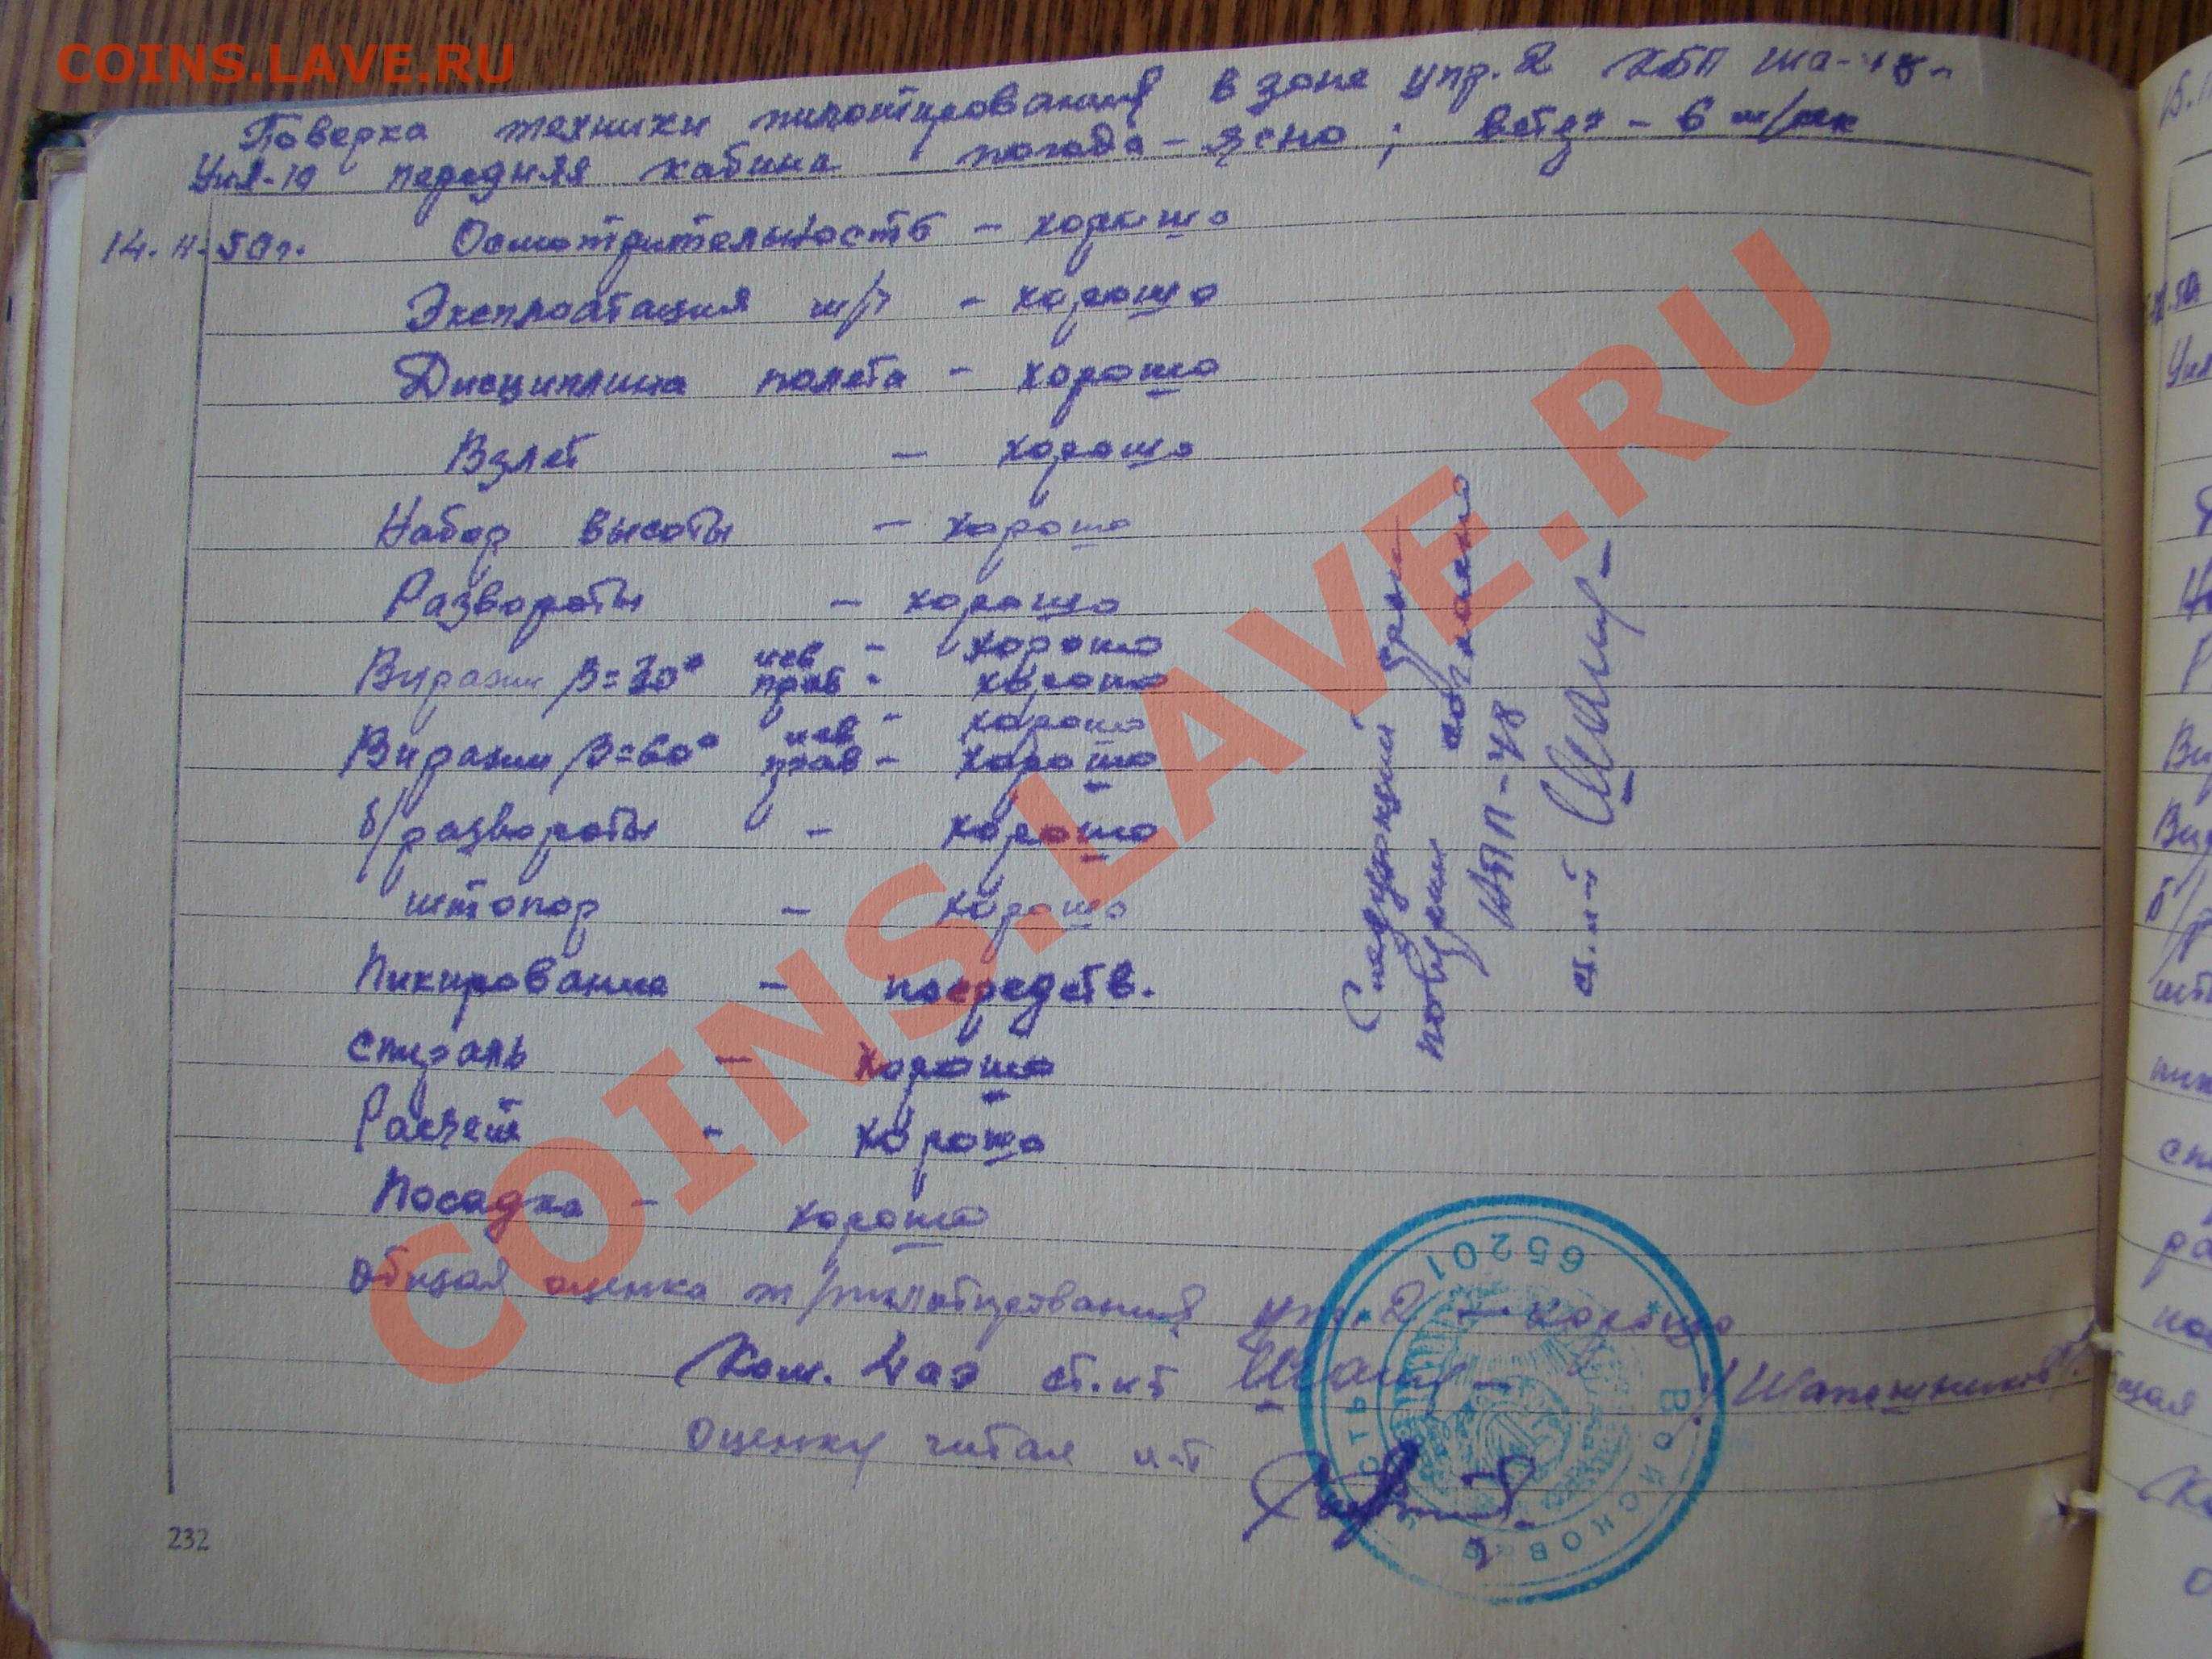 COINS.LAVE.RU
Поверка техники пилотирования в зоне упр. 2 КБП ша-48
Уил-10 передняя кабина погода - ясно; - 6 м/сек
14. 50г. Осмотрительность - хорошо
Эксплоатация м/ч - хорошо
Дисциплина полета - хорошо
Взлет - хорошо
Набор высоты - хорошо
Развороты - хорошо
лев - хорошо
Виражи β=30° прав - хорошо
лев - хорошо
Виражи β=60° прав - хорошо
б/развороты - хорошо
штопор - хорошо
Пикирование - посредств.
спираль - хорошо
Расчет - хорошо
Посадка - хорошо
Общая оценка т/пилотирования упр. 2 - хорошо
Ком. 4 аэ ст. л-т /Шапошников/
оценку читал л-т
Следующий срок
поверки согласно
НПП-48
ст. л-т
65201
Войсковая часть
232
COINS.LAVE.RU